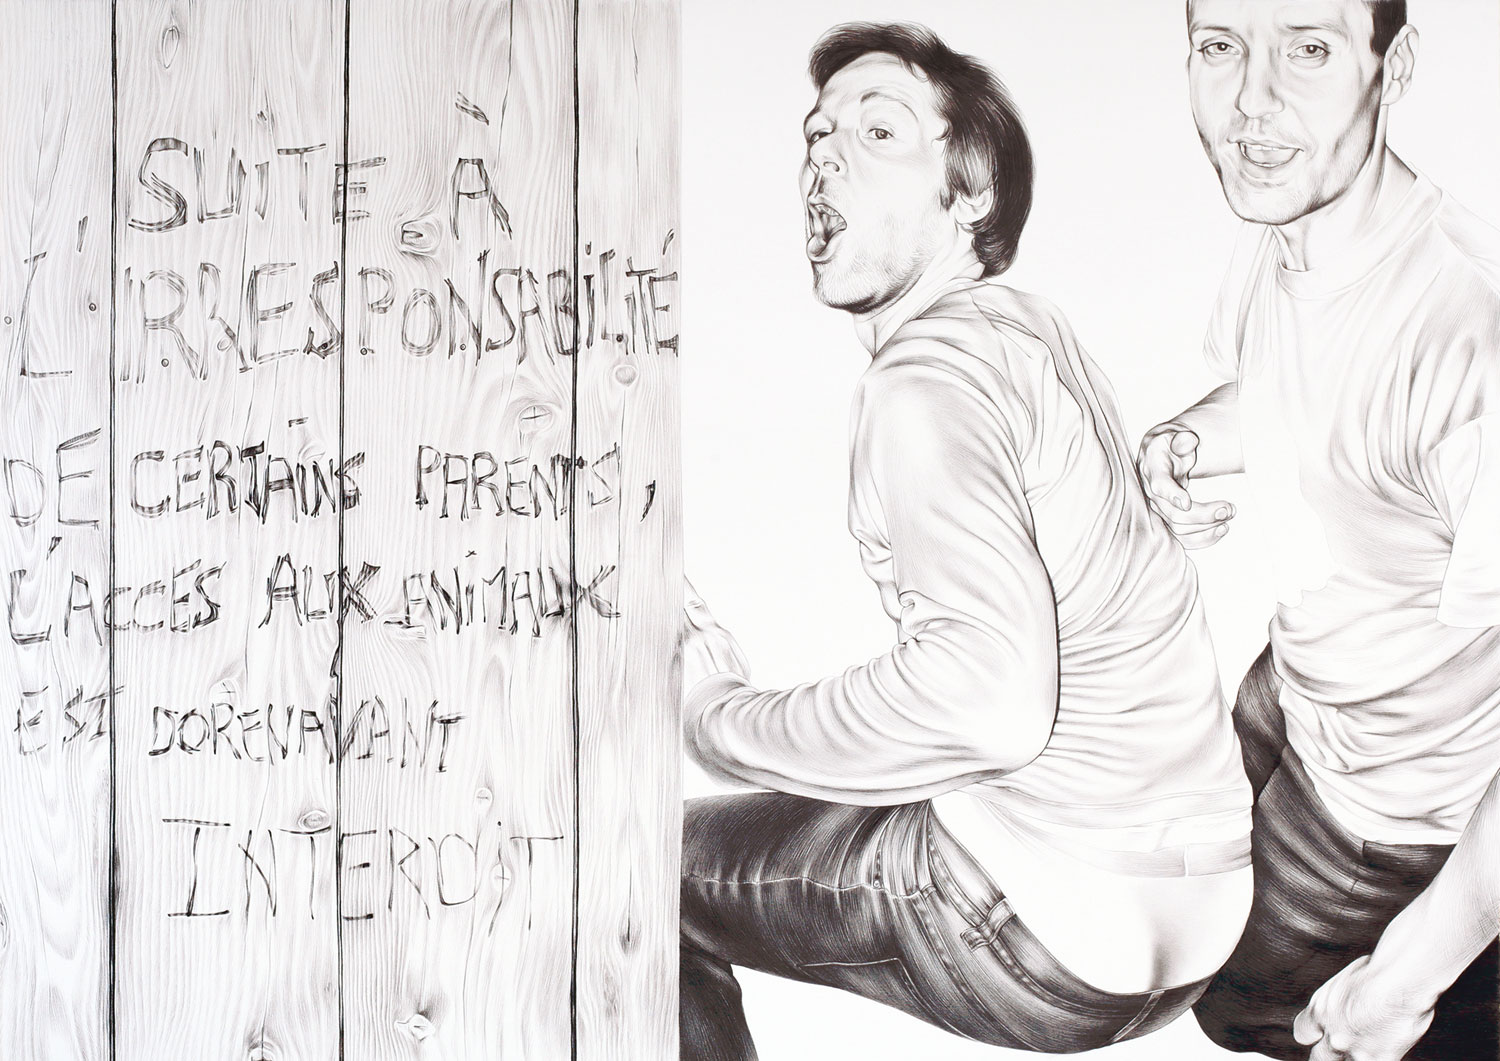 SUITE À
L'IRRESPONSABILITÉ
DE CERTAINS PARENTS,
L'ACCÈS AUX ANIMAUX
EST DORENAVANT
INTERDIT